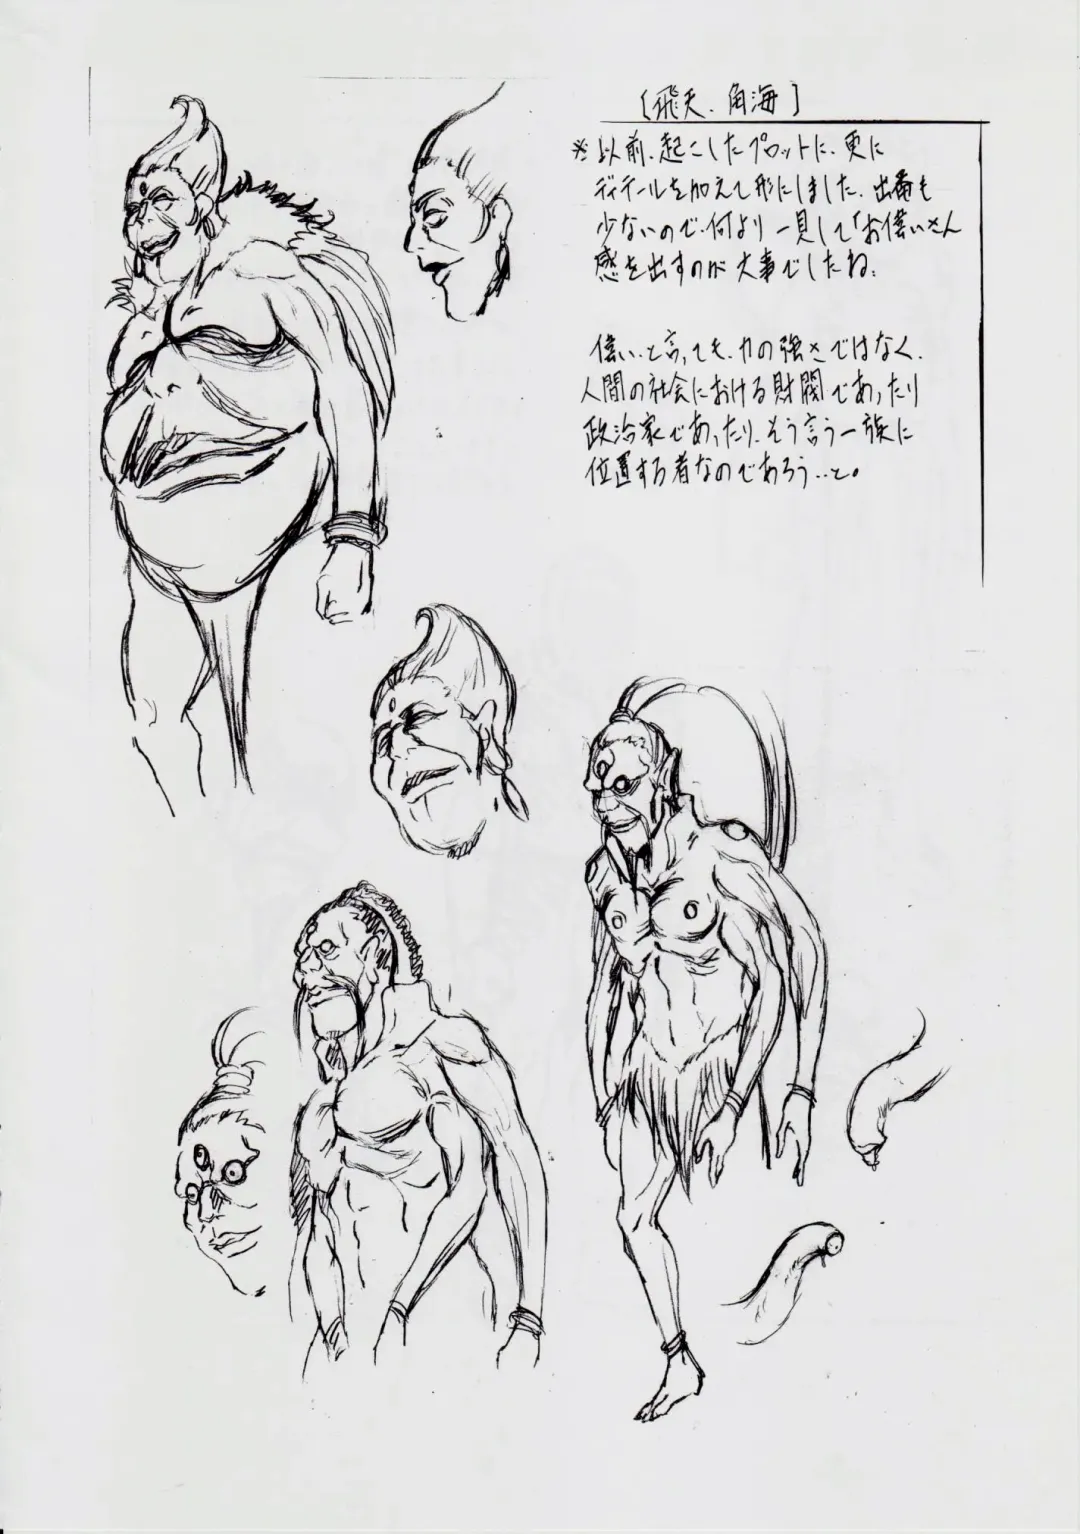 [飛天、角海]
※以前、起こしたプロットに、更に
ディテールを加えて形にしました。出番も
少ないので、何より一見して「お偉いさん
感を出すのが大事でしたね。
偉い…と言っても、力の強さではなく、
人間の社会における財閥であったり
政治家であったり、そう言う一族に
位置する者なのであろう…と。